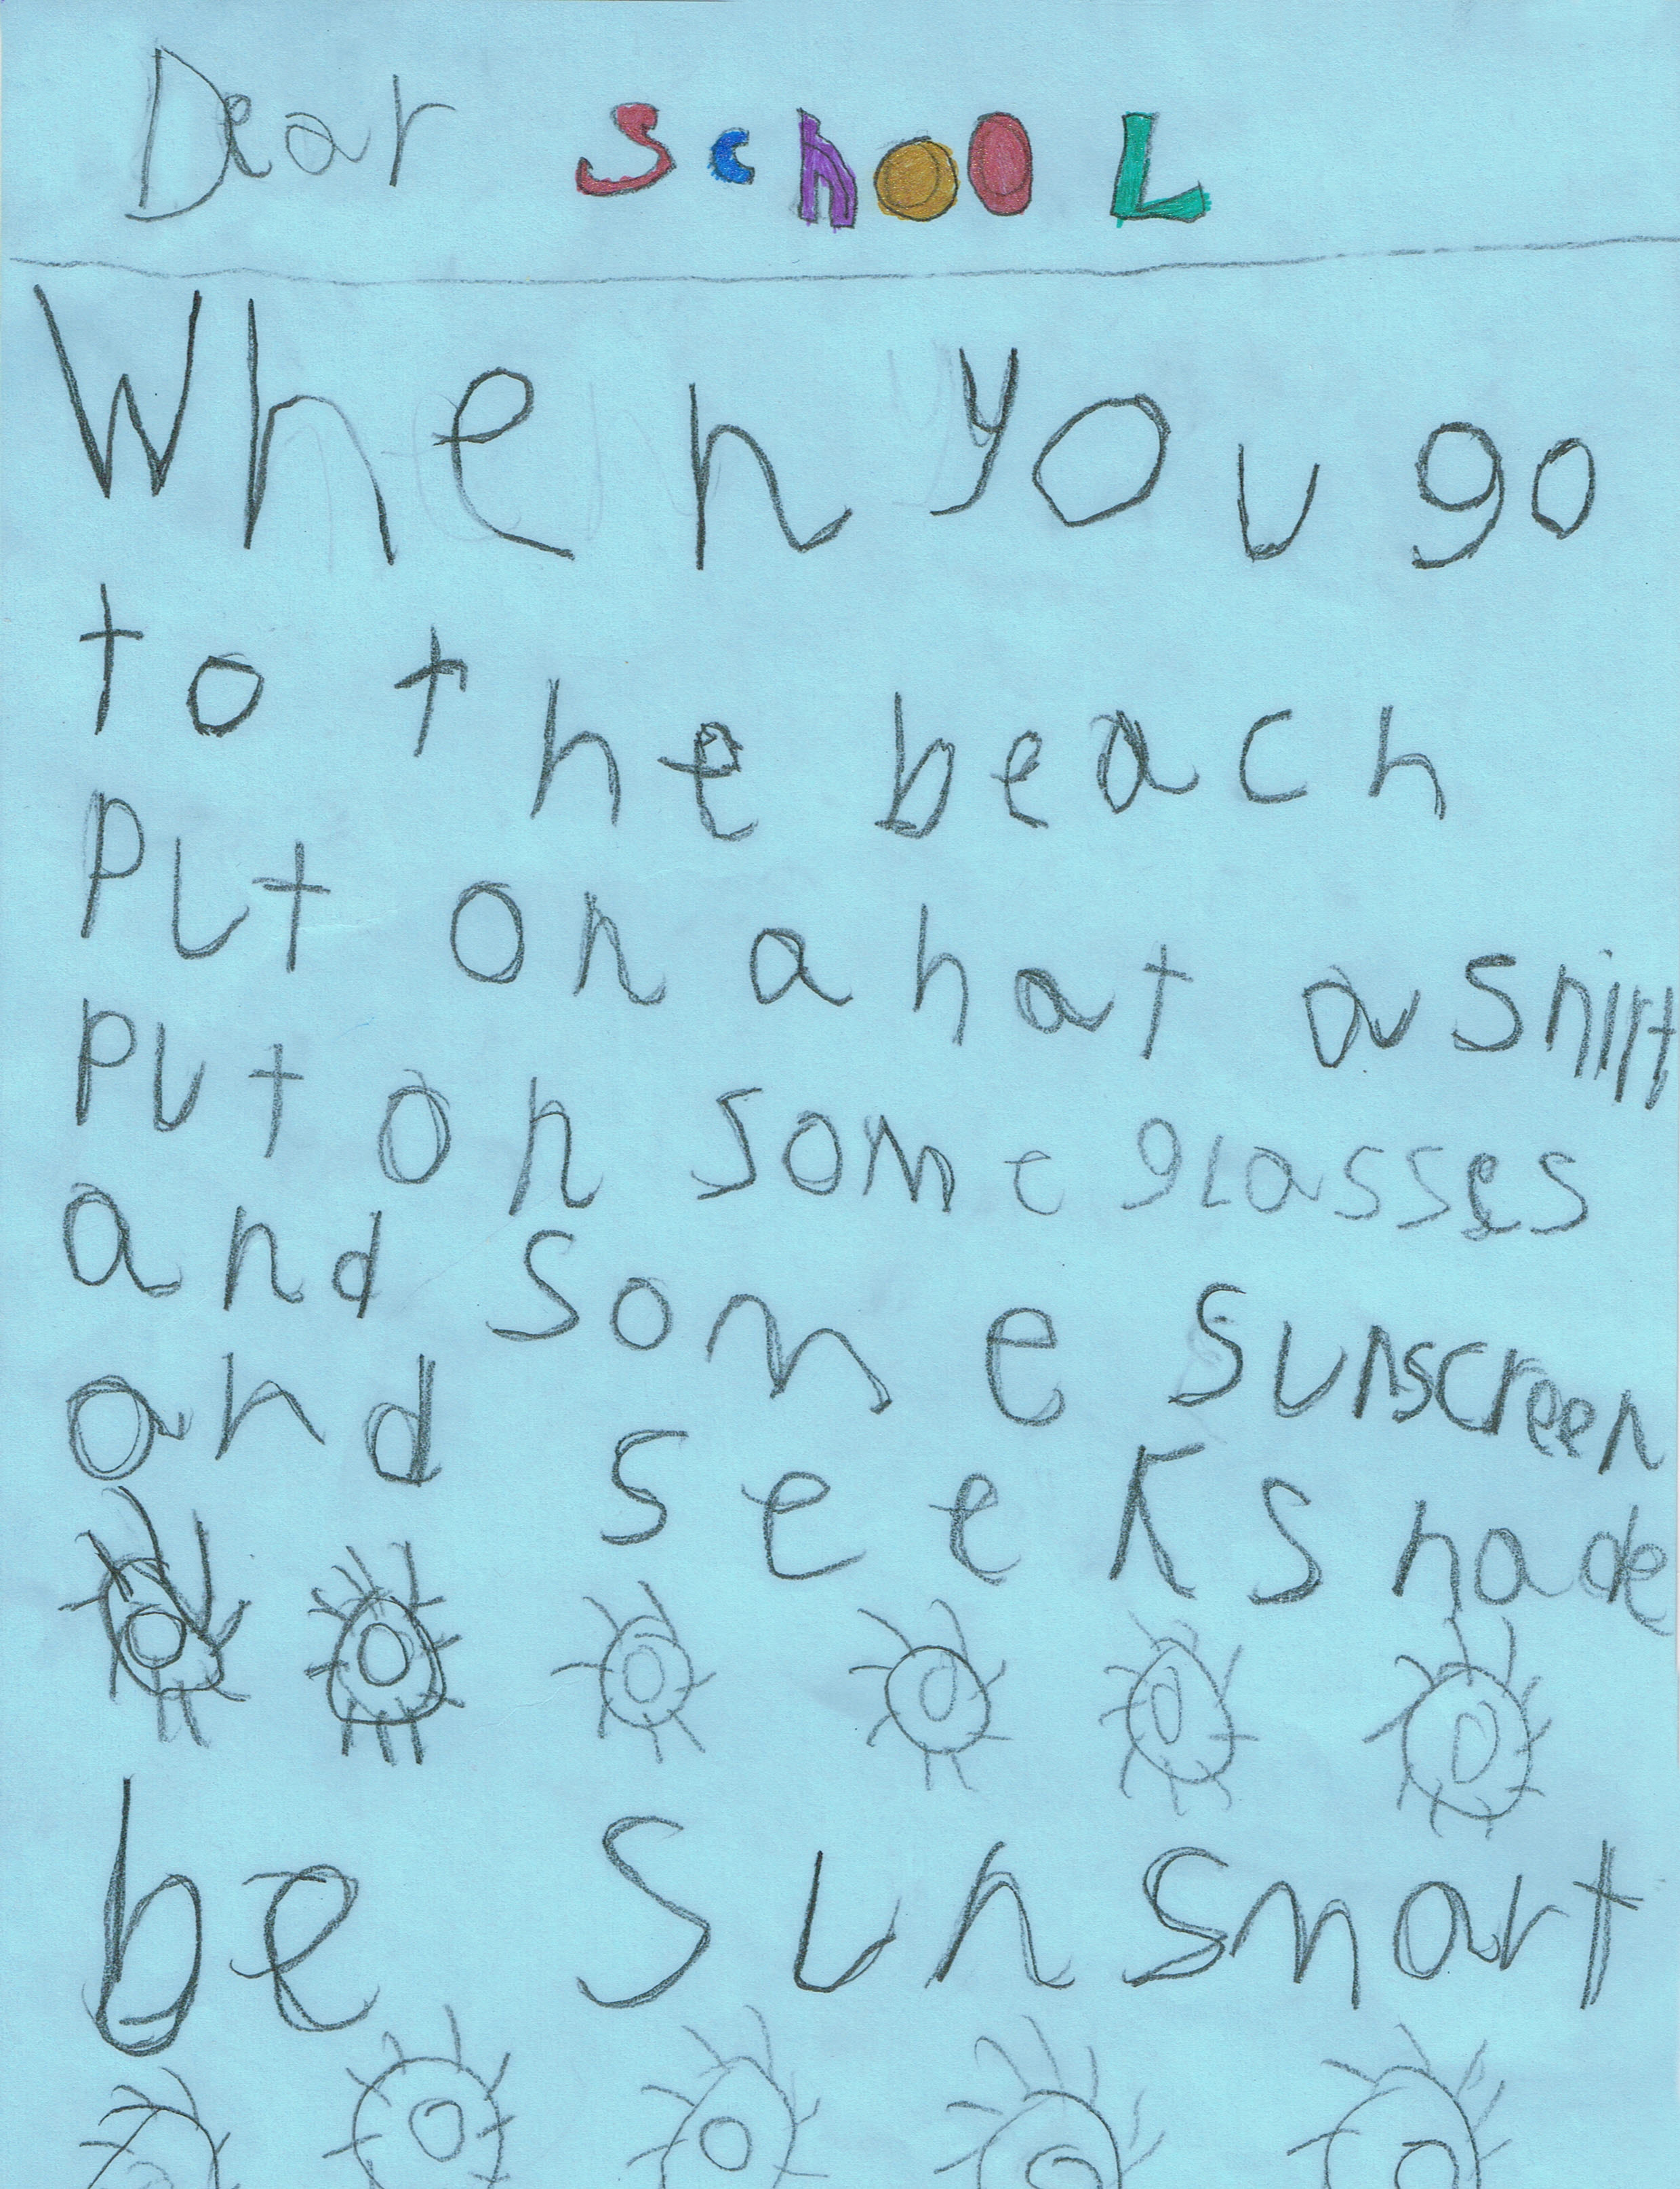 Dear School
When you go
to the beach
Put on a hat a shirt
Put on some glasses
and some sunscreen
and seek shade
be sunsmart